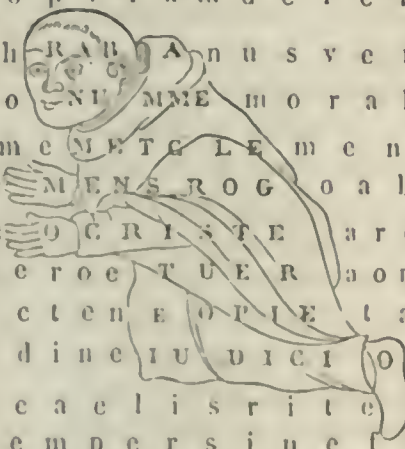 h R A B A n u s v e r
o N U M M E m o r a l
m e M E T C L E m e n
M E N S R O G o a l
O C R I S T E a r
e r o e T U E R a o n
c t e n E O P I E t a
d i n e I U D I C I O
c a e l i s r i t e
e m p e r s i n e